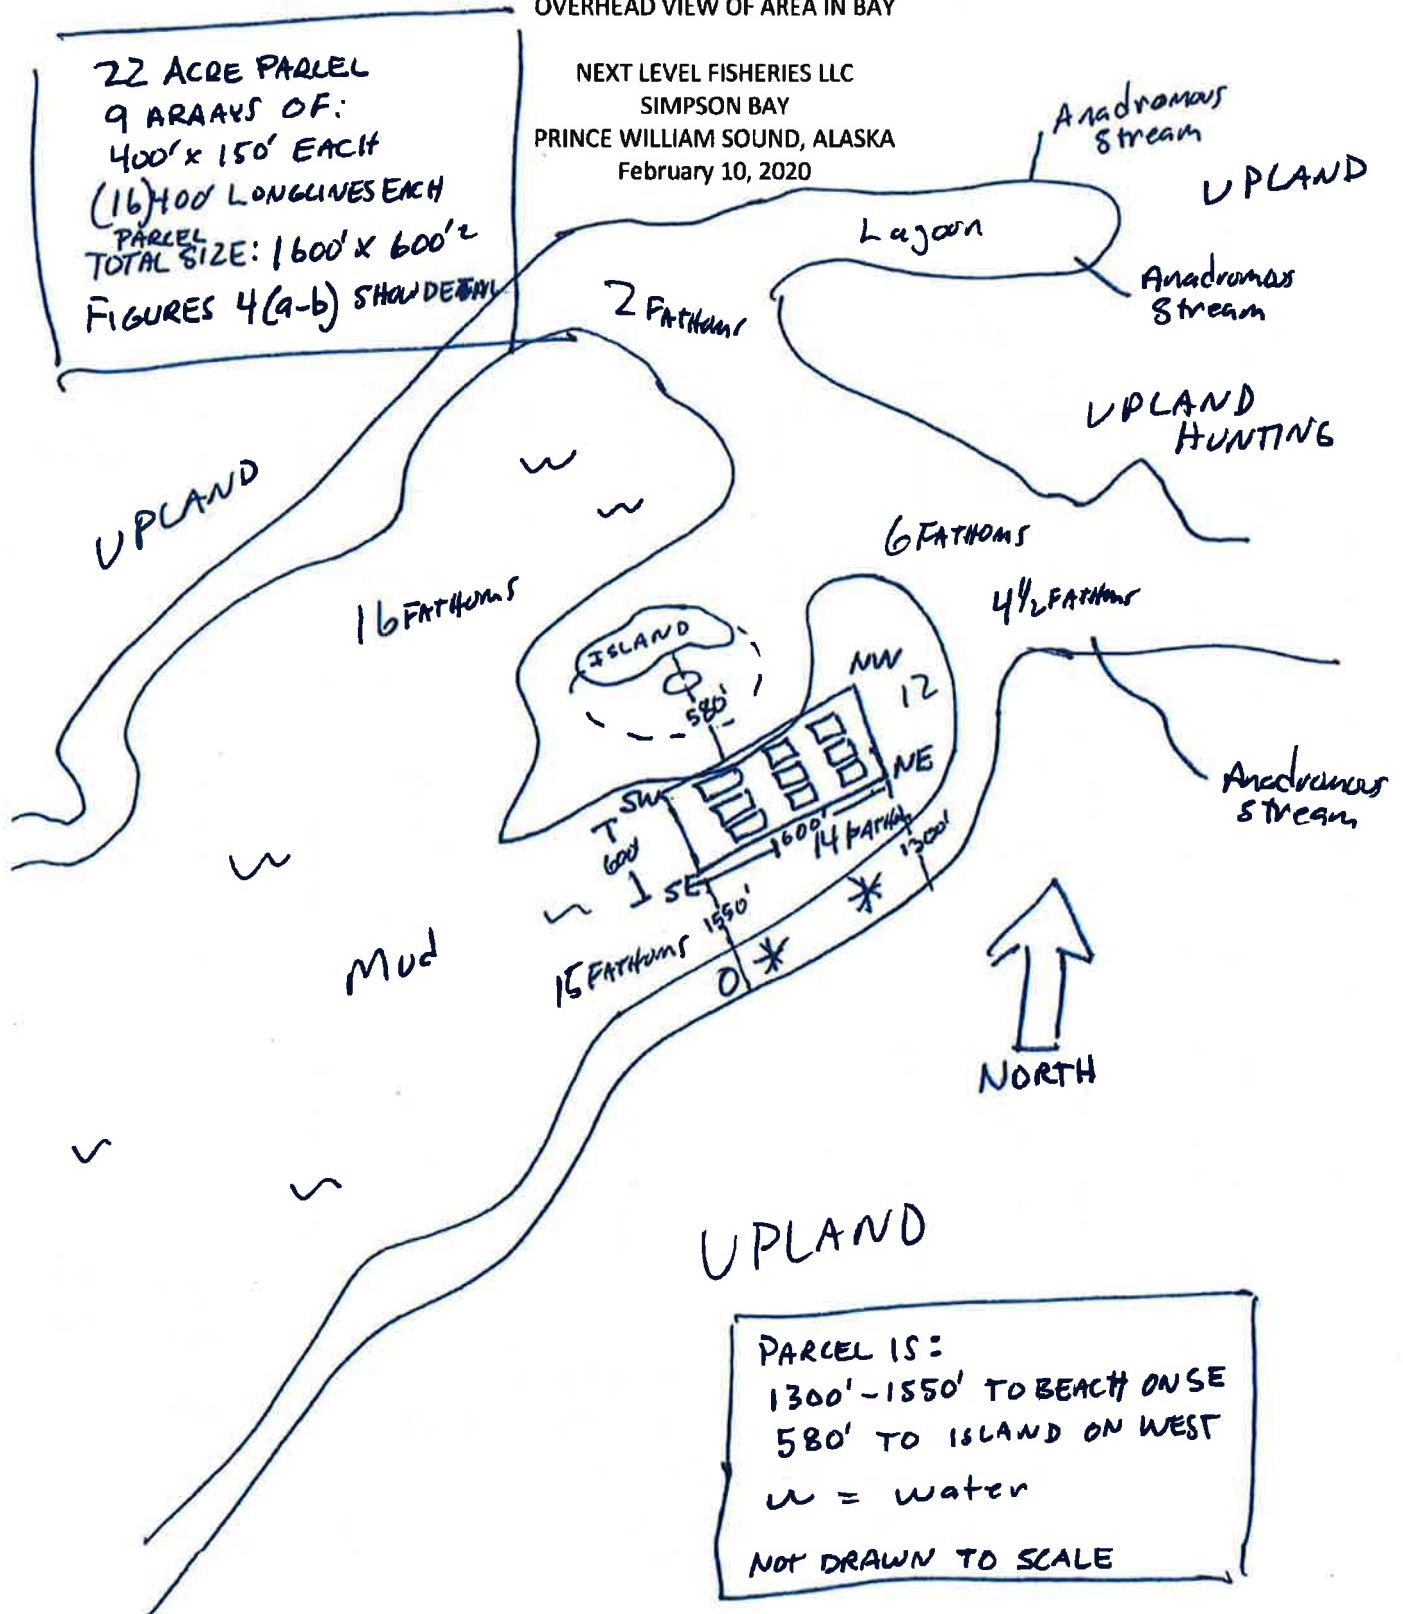 OVERHEAD VIEW OF AREA IN BAY
NEXT LEVEL FISHERIES LLC
SIMPSON BAY
PRINCE WILLIAM SOUND, ALASKA
February 10, 2020
22 ACRE PARCEL
9 ARAAYS OF:
400' x 150' EACH
(16) 400' LONGLINES EACH
PARCEL
TOTAL SIZE: 1600' x 600'²
FIGURES 4(a-b) SHOW DETAIL
Anadromous
Stream
UPLAND
Lagoon
Anadromous
Stream
2 FATHOMS
UPLAND
HUNTING
UPLAND
6 FATHOMS
16 FATHOMS
4 1/2 FATHOMS
ISLAND
580'
NW
12
NE
SW
600'
SE
1600'
14 FATHOMS
1300'
1550'
15 FATHOMS
Anadromous
Stream
Mud
NORTH
UPLAND
PARCEL IS:
1300'-1550' TO BEACH ON SE
580' TO ISLAND ON WEST
w = water
NOT DRAWN TO SCALE